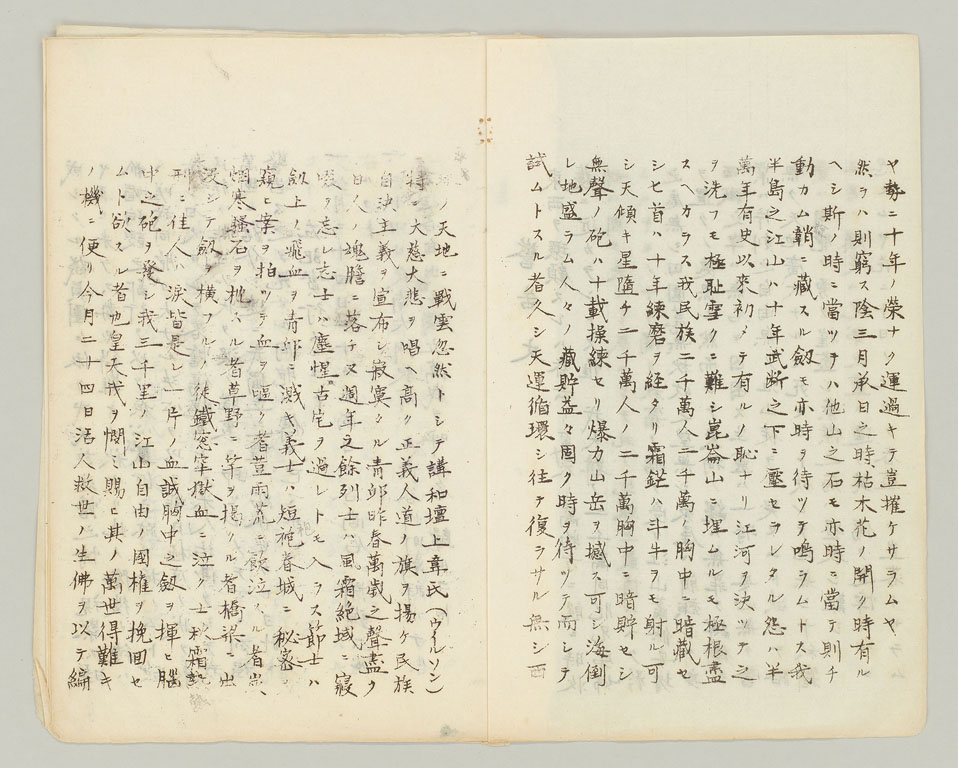 ヤ勢二十年ノ榮ナク運過キテ豈摧ケサラムヤ
然ラハ則窮ス陰三月承日之時枯木花ノ開ク時有ル
ヘシ斯ノ時ニ當ツテハ他山之石モ亦時ニ當テ則チ
動カム鞘ニ藏スル劔モ亦時ヲ待ツテ鳴ラムトス我
半島之江山ハ十年武断之下ニ壓セラレタル怨ハ半
萬年有史以來初メテ有ルノ恥ナリ江河ヲ決ツテ之
ヲ洗フモ極耻雪クニ難シ崑崙山ニ埋ムルモ極根盡
スヘカラス我民族二千萬人二千萬ノ胸中ニ暗藏セ
シ七首ハ十年練磨ヲ経タリ霜鋩ハ斗牛ヲモ射ル可
シ天傾キ星墮チ二千萬人ノ二千萬胸中ニ暗貯セシ
無聲ノ砲ハ十載操練セリ爆力山岳ヲ撼ス可シ海倒
レ地盛ラム人々ノ藏貯益々固ク時ヲ待ツテ而シテ
試ムトスル者久シ天運循環シ往テ復ラサル無シ西
ノ天地ニ戰雲忽然トシテ講和壇上韋氏(ウールソン)
特ニ大慈大悲ヲ唱ヘ高ク正義人道ノ旗ヲ揚ケ民族
自決主義ヲ宣布シ寂寞タル青邱昨春萬歳之聲盡ク
日人ノ魂膽ニ落チ又週年之餘列士ハ風霜絶域ニ寢
啜ヲ忘レ志士ハ塵惺古宅ヲ過レトモ入ラス節士ハ
劔上ノ飛血ヲ青邱ニ濺キ義士ハ短袍春城ニ秘密
窺ヒ案ヲ拍ツテ血ヲ嘔ク者荳雨荒ニ飲泣スル者
烟寒搔石ヲ枕スル者草野ニ竿ヲ揭クル者橋梁ニ出
没シテ劔ヲ横フルノ徒鐵窓牢獄血ニ泣ク士秋霜
刑ニ佳人ハ涙皆是レ一片ノ血誠胸中之劔ヲ揮ヒ腦
中之砲ヲ發シ我三千里ノ江山自由ノ國権ヲ挽回セ
ムト欲スル者也皇天我ヲ憫ミ賜ヒ其ノ萬世得難キ
ノ機ニ便リ今月二十四日活人救世ノ生佛ヲ以テ編